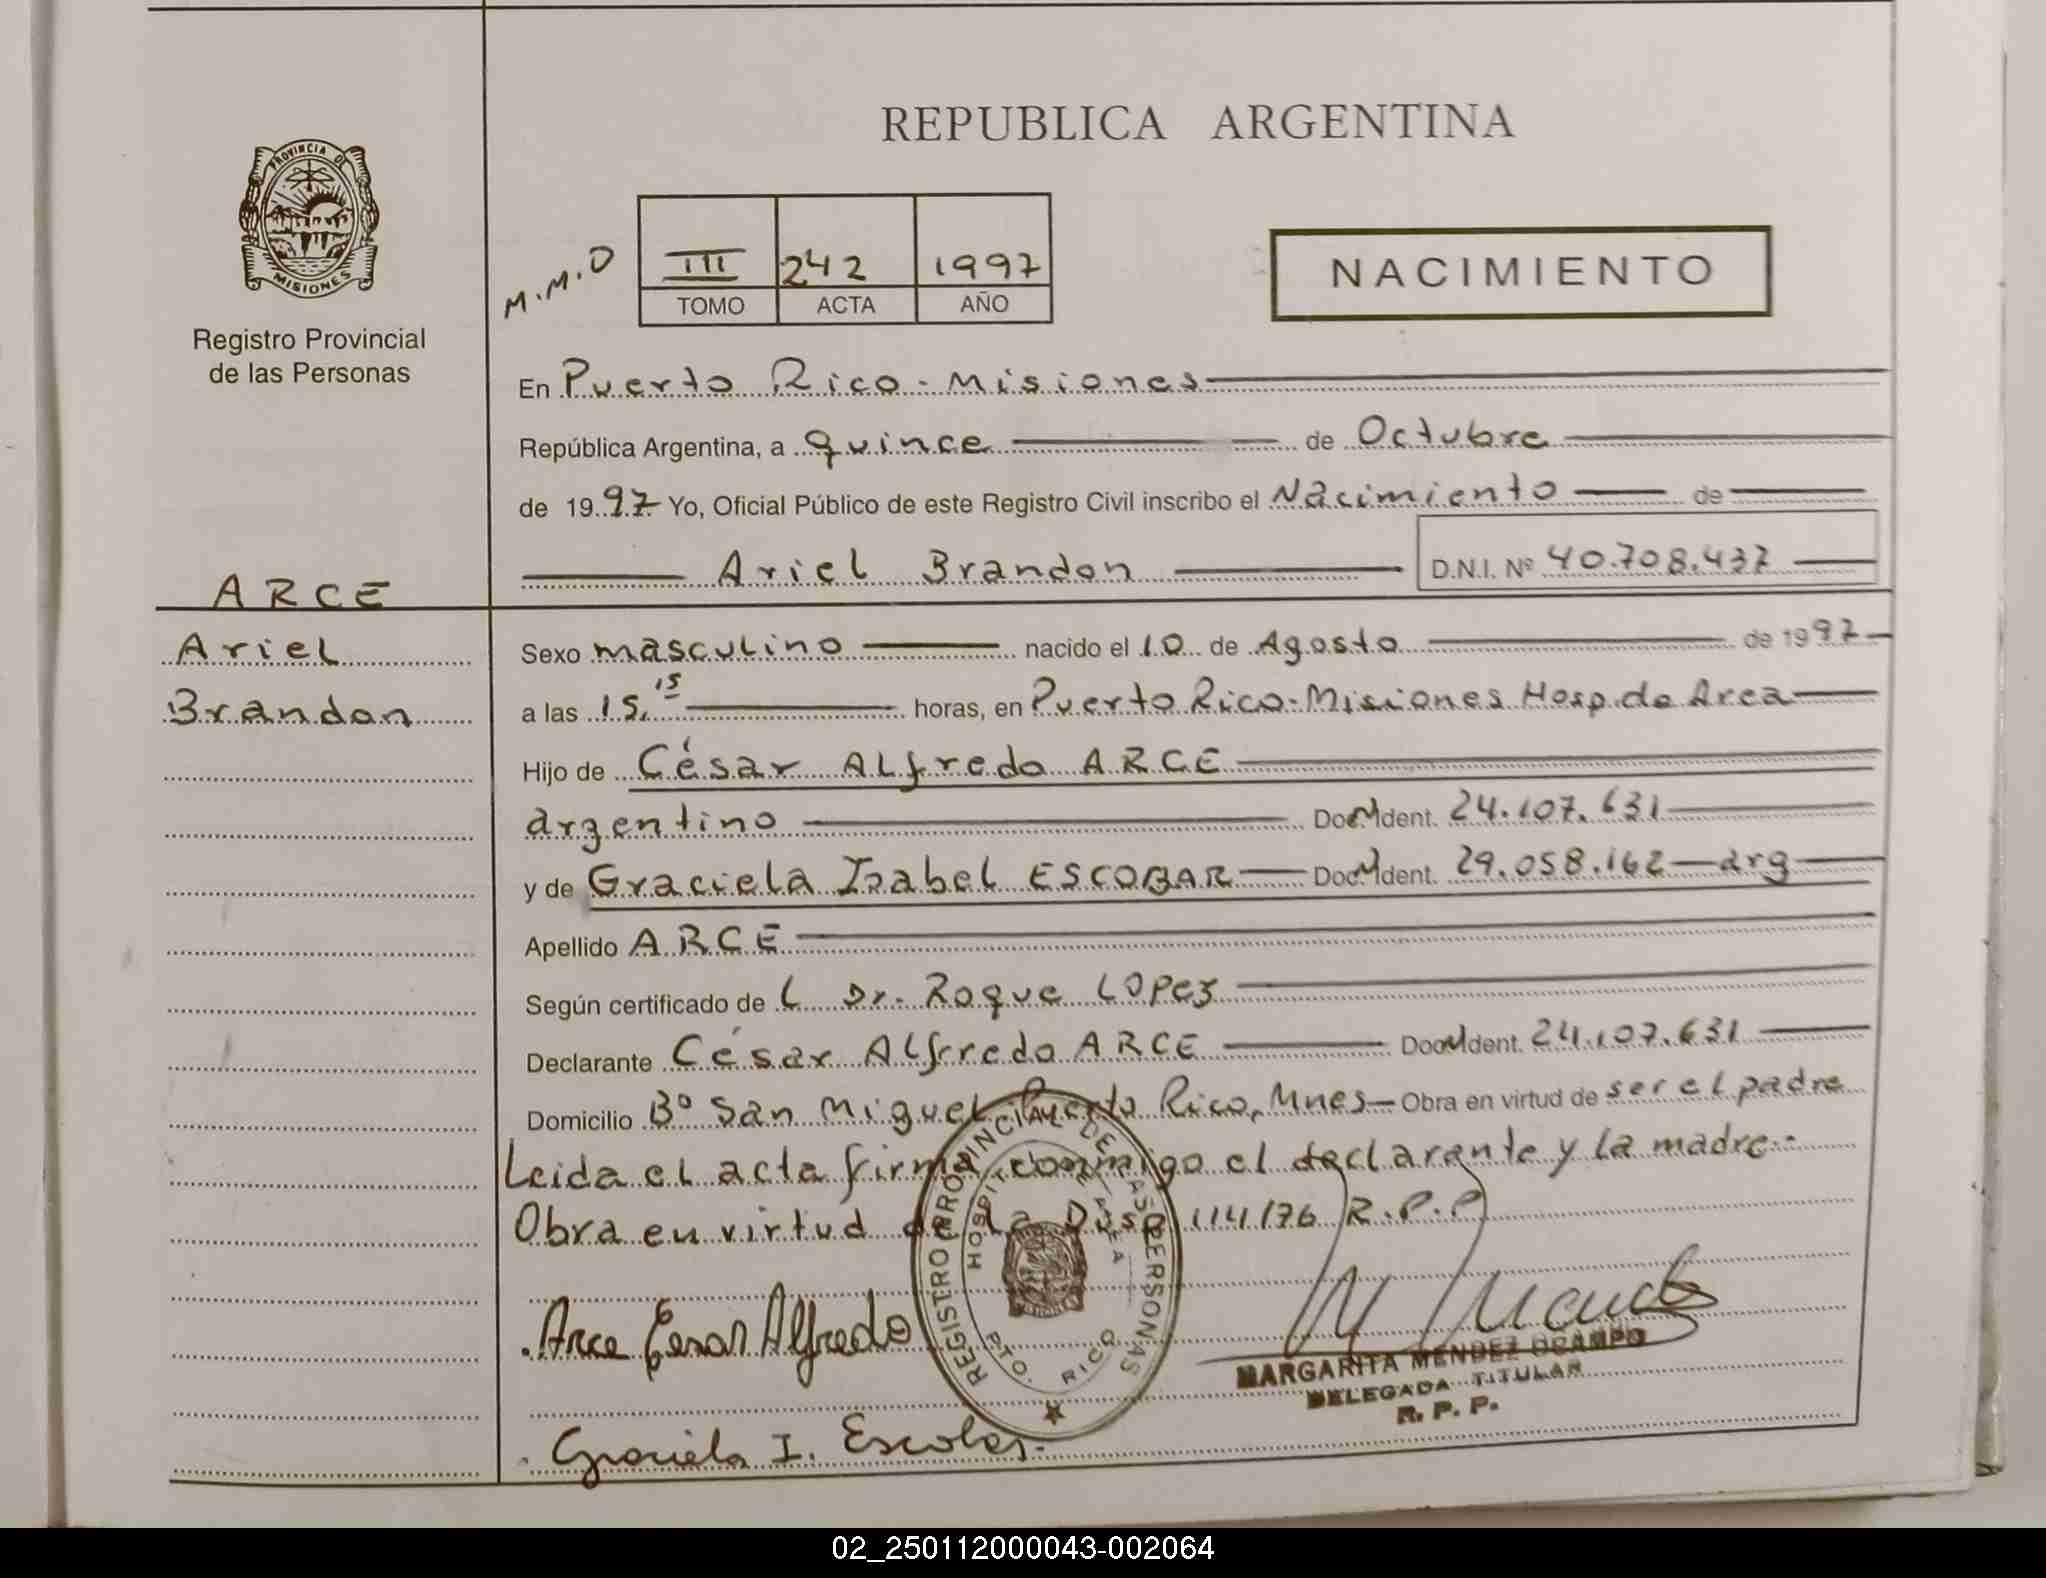 REPUBLICA ARGENTINA
PROVINCIA DE
MISIONES
Registro Provincial
de las Personas
M.M.O
III 242 1997
TOMO ACTA AÑO
NACIMIENTO
En Puerto Rico - Misiones
República Argentina, a quince de Octubre
de 1997 Yo, Oficial Público de este Registro Civil inscribo el Nacimiento de
Ariel Brandon D.N.I. Nº 40.708.437
ARCE
Ariel
Brandon
Sexo masculino nacido el 10 de Agosto de 1997
a las 15,15 horas, en Puerto Rico-Misiones Hosp.de Area
Hijo de César ALfredo ARCE
argentino Doc. Ident. 24.107.631
y de Graciela Isabel ESCOBAR Doc. Ident. 29.058.162 arg
Apellido ARCE
Según certificado de L Dr. Roque LOPez
Declarante César ALfredo ARCE Doc. Ident. 24.107.631
Domicilio Bº San Miguel Puerto Rico, Mnes Obra en virtud de ser el padre
Leida el acta firma conmigo el declarante y la madre.-
Obra en virtud de la Disp 114/76 R.P.P
REGISTRO PROVINCIAL DE LAS PERSONAS
HOSPITAL AREA
PTO. RICO
Arce Cesar Alfredo
MARGARITA MENDEZ OCAMPO
DELEGADA TITULAR
R. P. P.
Graciela I. Escobar.-
02_250112000043-002064